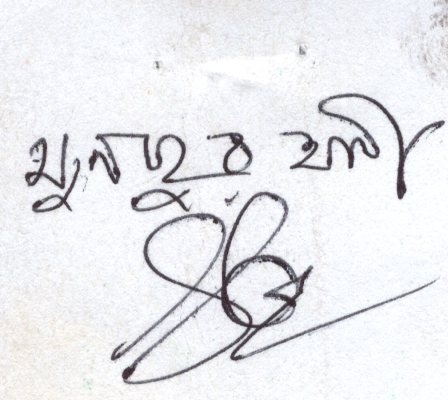 মুনছুর আলী